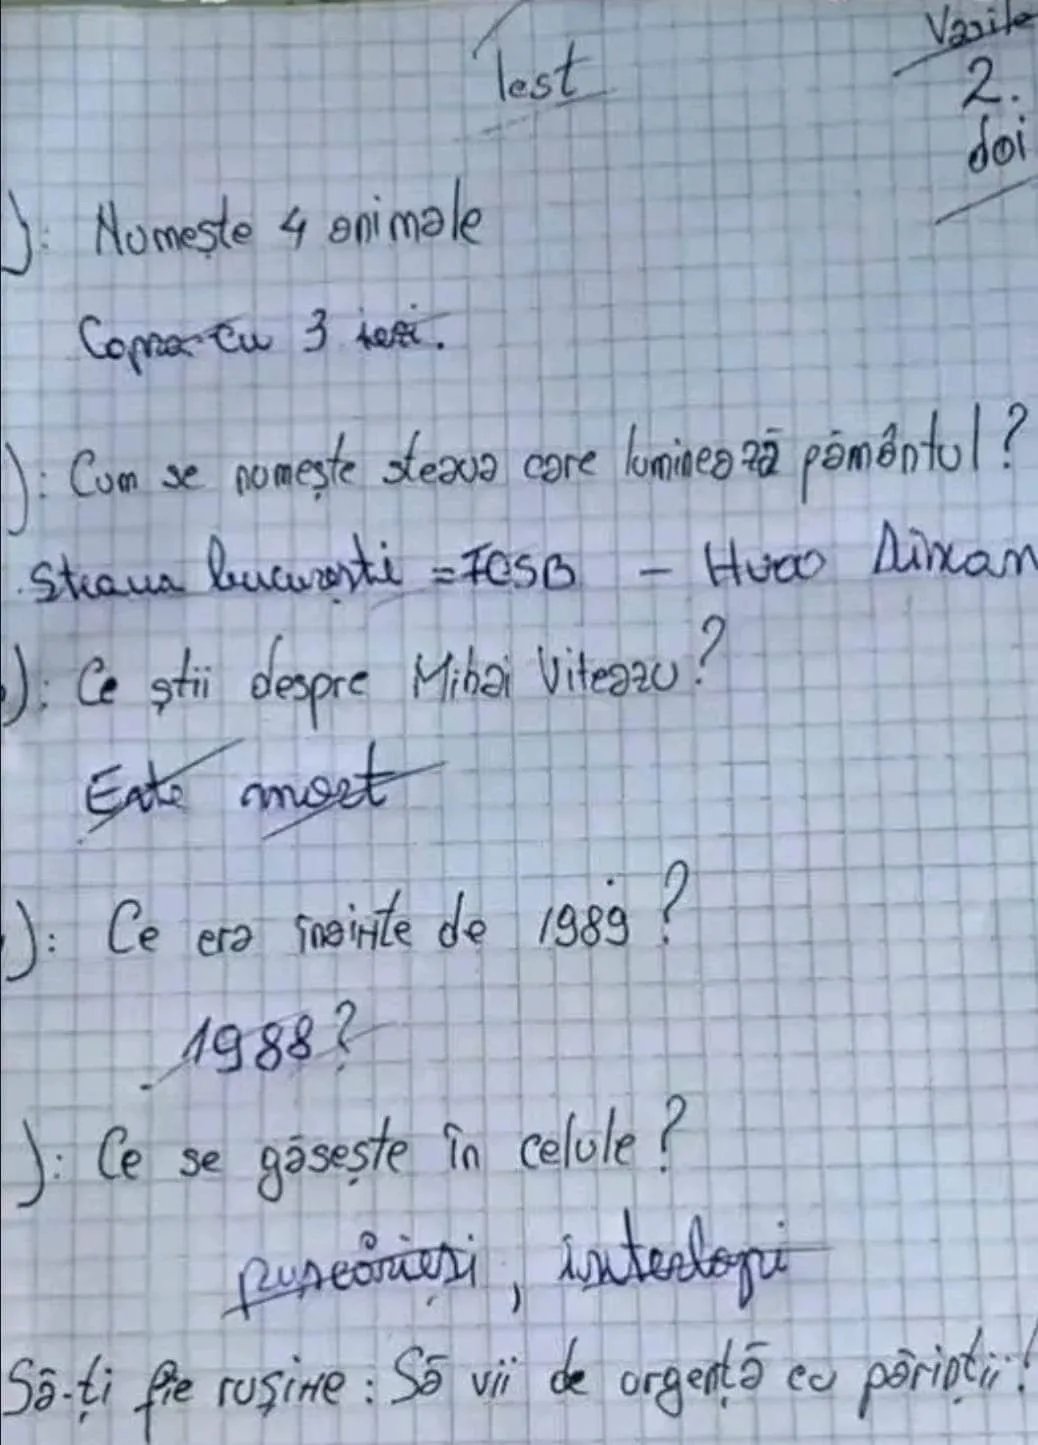 Test
Vasile
2.
doi
): Numește 4 animale
Capra cu 3 iezi.
): Cum se numește steaua care luminează pământul?
Steaua bucurești = FCSB -
): Ce știi despre Mihai Viteazu?
Este mort
): Ce era înainte de 1989?
1988?
): Ce se găsește în celule?
pușcăriași, interlopi
Să-ți fie rușine: Să vii de urgență cu părinții!